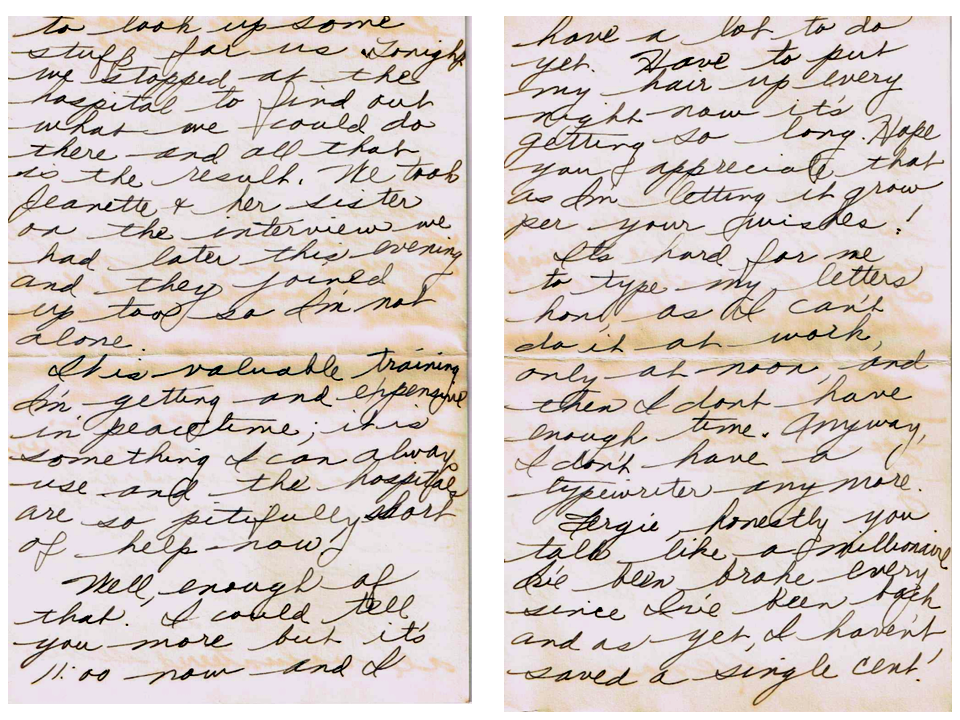 to look up some
stuff for us. Tonight
we stopped at the
hospital to find out
what we could do
there and all that
is the result. We took
Jeanette & her sister
on the interview we
had later this evening
and they joined
up too so I'm not
alone.
It is valuable training
I'm getting and expensive
in peacetime; it is
something I can always
use and the hospitals
are so pitifully short
of help now.
Well, enough of
that. I could tell
you more but it's
11:00 now and I
have a lot to do
yet. Have to put
my hair up every
night now it's
getting so long. Hope
you appreciate that
as I'm letting it grow
per your wishes!
It's hard for me
to type my letters
hon, as I can't
do it at work,
only at noon, and
then I dont have
enough time. Anyway,
I don't have a
typewriter any more.
Fergie, honestly you
talk like a millionaire
I've been broke every
since I've been back
and as yet, I haven't
saved a single cent!